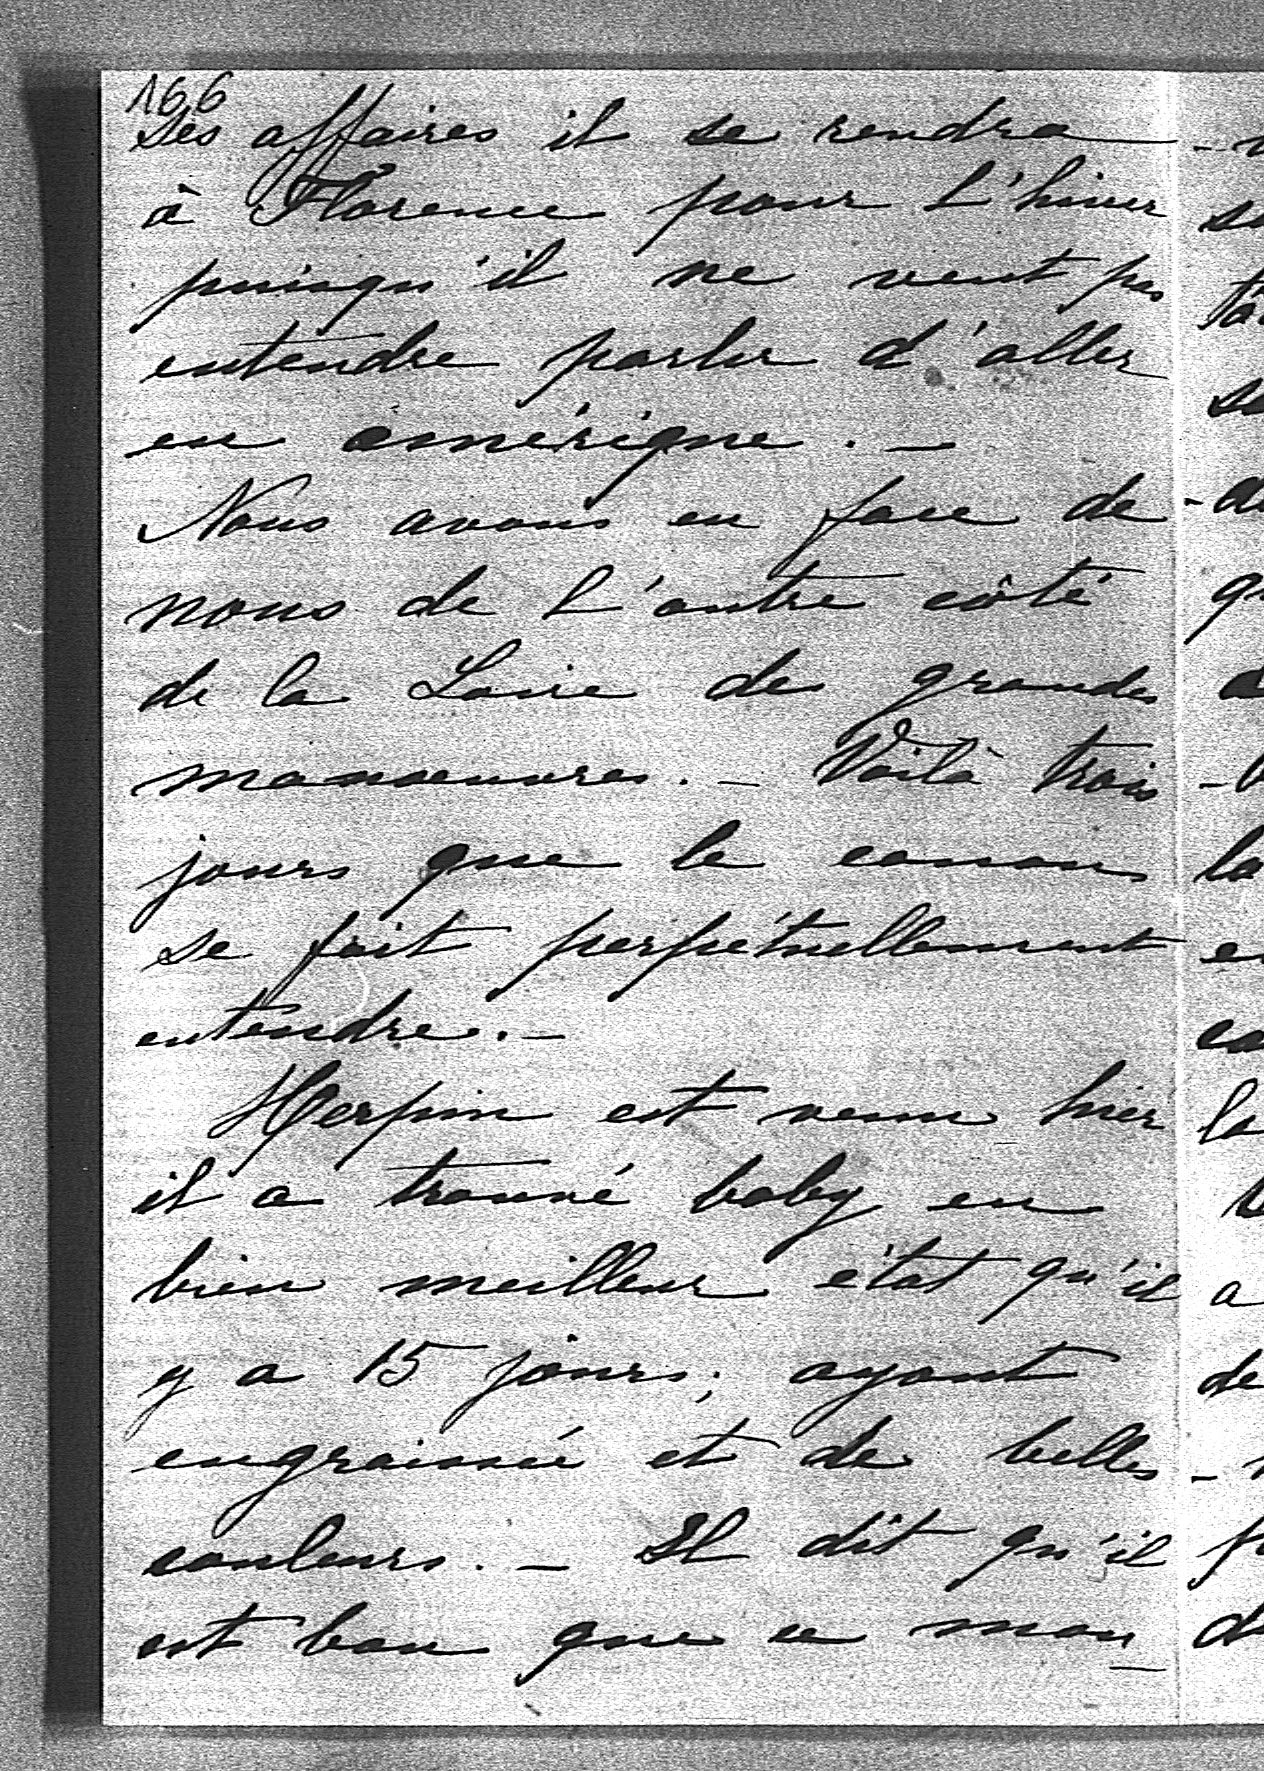 166
ses affaires il se rendra
à Florence pour l'hiver
puisqu'il ne veut pas
entendre parler d'aller
en amérique. -
Nous avons en face de
nous de l'autre côté
de la Loire de grandes
manoeuvres. - Voilà trois
jours que le canon
se fait perpétuellement
entendre. -
Herpin est venu hier
il a trouvé baby en
bien meilleur état qu'il
y a 15 jours; ayant
engraissé et de belles
couleurs. - Il dit qu'il
est bon que ce mou